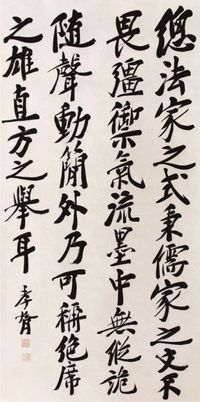 總法家之式秉儒家之文不
畏彊禦氣流墨中無縱詭
隨聲動簡外乃可稱絶席
之雄直方之舉耳
孝胥